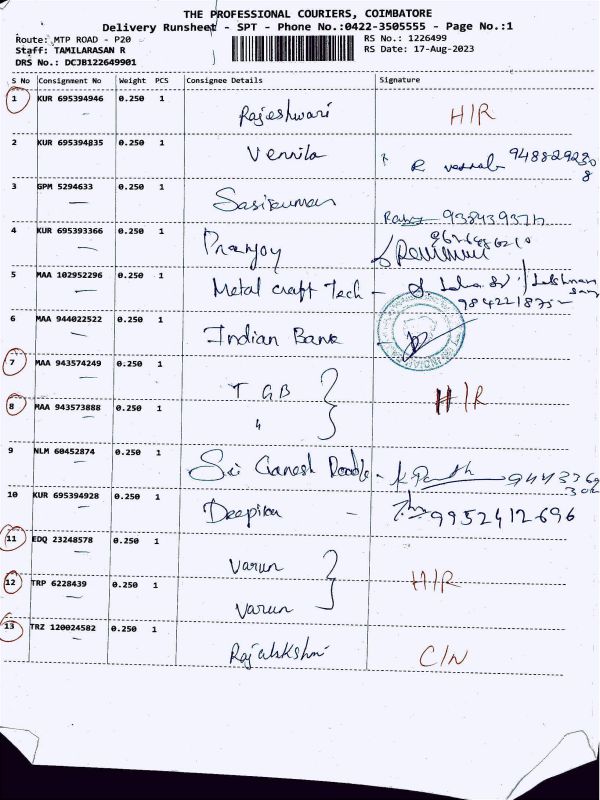 THE PROFESSIONAL COURIERS, COIMBATORE
Delivery Runsheet - SPT - Phone No.:0422-3505555 - Page No.:1
Route: MTP ROAD - P20
RS No.: 1226499
Staff: TAMILARASAN R
RS Date: 17-Aug-2023
DRS No.: DCJB122649901
S No Consignment No Weight PCS Consignee Details Signature
1 KUR 695394946 0.250 1 Rajeshwari H/R
2 KUR 695394835 0.250 1 Vennila R 9488292308
3 GPM 5294633 0.250 1 Sasikumar
4 KUR 695393366 0.250 1 Pranjoy
5 MAA 102952296 0.250 1 Metal craft Tech -
6 MAA 944022522 0.250 1 Indian Bank
7 MAA 943574249 0.250 1 T G B H/R
8 MAA 943573888 0.250 1 "
9 NLM 60452874 0.250 1 Sri Ganesh -
10 KUR 695394928 0.250 1 Deepika - 9952412696
11 EDQ 23248578 0.250 1 Varun H/R
12 TRP 6228439 0.250 1 Varun
13 TRZ 120024582 0.250 1 Rajalakshmi C/N